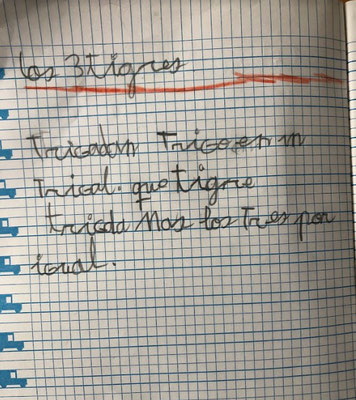 Los 3 tigres
Tricadan Trigo en un
Trical. que tigre
tricda Mas los Tres por
ioual.